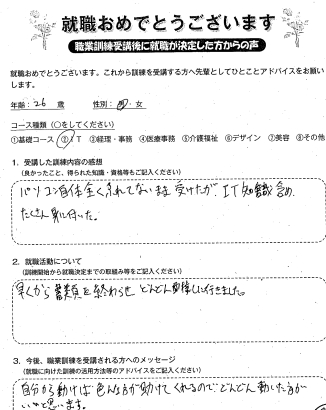 就職おめでとうございます
職業訓練受講後に就職が決定した方からの声
就職おめでとうございます。これから訓練を受講する方へ先輩としてひとことアドバイスをお願い
します。
年齢:26 歳 性別:男・女
コース種類(○をしてください)
①基礎コース ②IT ③経理・事務 ④医療事務 ⑤介護福祉 ⑥デザイン ⑦美容 ⑧その他
1.受講した訓練内容の感想
(良かったこと、得られた知識・資格等もご記入ください)
パソコン自体全くふれてないまま受けたが、IT知識含め、
たくさん身に付いた。
2.就職活動について
(訓練開始から就職決定までの取組み等をご記入ください)
早くから書類を終わらせ どんどん 行きました。
3.今後、職業訓練を受講される方へのメッセージ
(就職に向けた訓練の活用方法等のアドバイスをご記入ください)
自分から動けば色んな方が助けてくれるのでどんどん動いた方が
いいと思います。